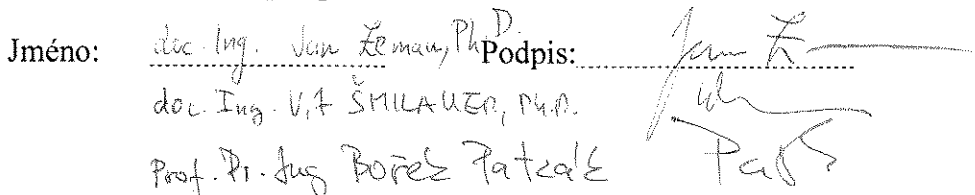 Jméno: doc. Ing. Jan Zeman, Ph.D. Podpis: Jan Z
doc. Ing. Vít ŠMILAUER, Ph.D.
Prof. Dr. Ing Bořek Patzák